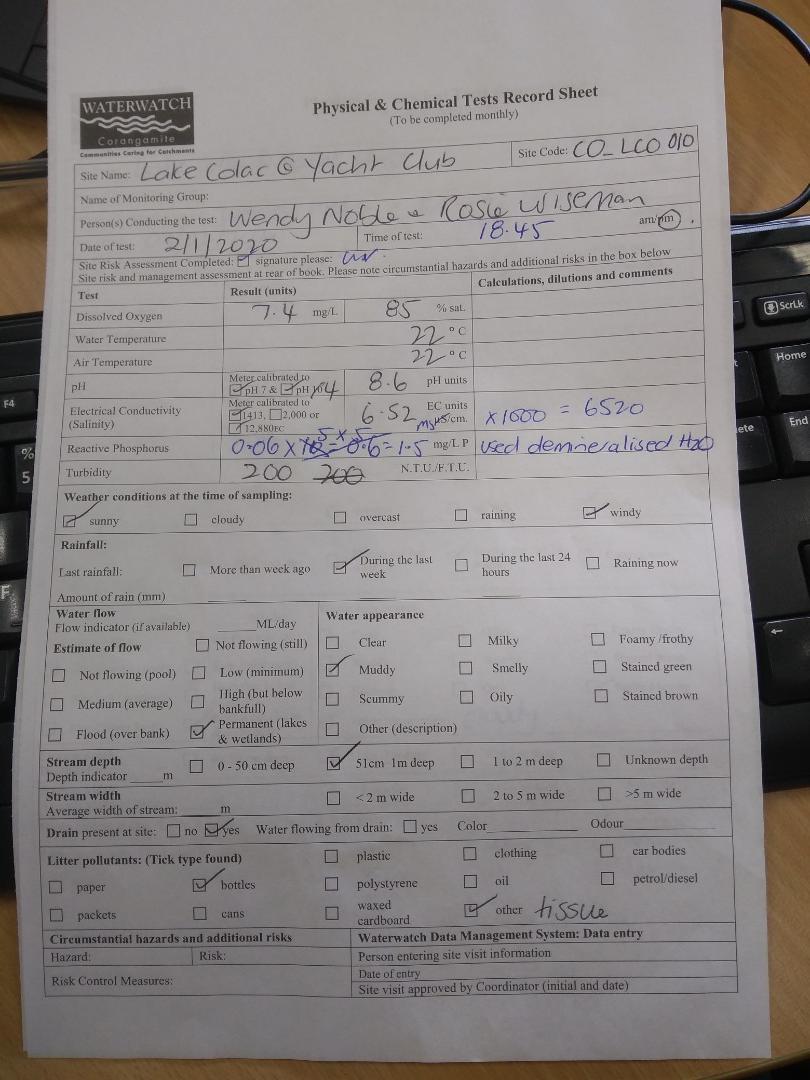 WATERWATCH
Corangamite
Communities Caring for Catchments
Physical & Chemical Tests Record Sheet
(To be completed monthly)
Site Name: Lake Colac @ Yacht Club
Site Code: CO_LCO 010
Name of Monitoring Group:
Person(s) Conducting the test: Wendy Noble & Rosie Wiseman
Date of test: 2/1/2020 Time of test: 18.45 am/pm
Site Risk Assessment Completed: signature please:
Site risk and management assessment at rear of book. Please note circumstantial hazards and additional risks in the box below
Test Result (units) Calculations, dilutions and comments
Dissolved Oxygen 7.4 mg/L 85 % sat.
Water Temperature 22 °C
Air Temperature 22 °C
pH Meter calibrated to pH 7 & pH 4 8.6 pH units
Electrical Conductivity (Salinity) Meter calibrated to 1413, 2,000 or 12,880EC 6.52 EC units mS/cm. x 1000 = 6520
Reactive Phosphorus 0.06 x 0.6 = 1.5 mg/L P used demineralised H2O
Turbidity 200 200 N.T.U./F.T.U.
Weather conditions at the time of sampling:
sunny cloudy overcast raining windy
Rainfall:
Last rainfall: More than week ago During the last week During the last 24 hours Raining now
Amount of rain (mm)
Water flow
Flow indicator (if available) ML/day
Estimate of flow Not flowing (still)
Not flowing (pool) Low (minimum)
Medium (average) High (but below bankfull)
Flood (over bank) Permanent (lakes & wetlands)
Water appearance
Clear Milky Foamy /frothy
Muddy Smelly Stained green
Scummy Oily Stained brown
Other (description)
Stream depth
Depth indicator m 0 - 50 cm deep 51cm 1m deep 1 to 2 m deep Unknown depth
Stream width
Average width of stream: m < 2 m wide 2 to 5 m wide >5 m wide
Drain present at site: no yes Water flowing from drain: yes Color Odour
Litter pollutants: (Tick type found) plastic clothing car bodies
paper bottles polystyrene oil petrol/diesel
packets cans waxed cardboard other tissue
Circumstantial hazards and additional risks
Hazard: Risk:
Risk Control Measures:
Waterwatch Data Management System: Data entry
Person entering site visit information
Date of entry
Site visit approved by Coordinator (initial and date)
ScrLk
Home
End
F4
%
5